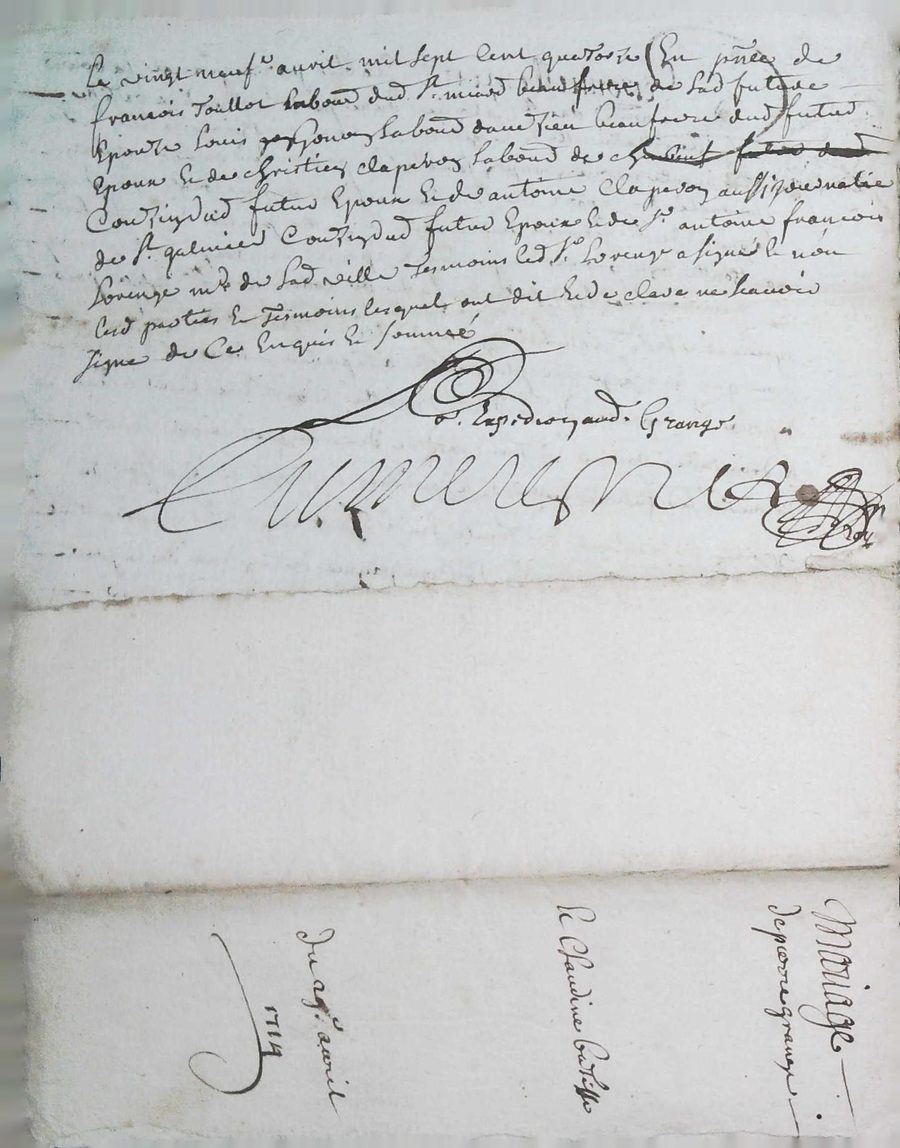 Le vingt neufe avril mil sept Cent quatorze En pnce de
francois Toullot laboud dud St. miard beaufrere de Lad future
Epouze Louis laboud daveizieu beaufrere dud futur
Epoux Et de christien claperon Laboud de
Couzin dud futur Epoux Et de antoine Claperon aussi
de St. galmier Couzin dud futur Epoux Et de Sr. antoine francois
Lorenge md de Lad ville Tesmoins led Sr. Lorenge a signé Et non
Lesd parties Et Tesmoins lesquels ont dit Et de claré ne scavoir
signe de Ce Enquis Et sommés
p. Expedition aud. Grange
Mariage
de pierre grange
Et Claudine
du 29e. avril
1714